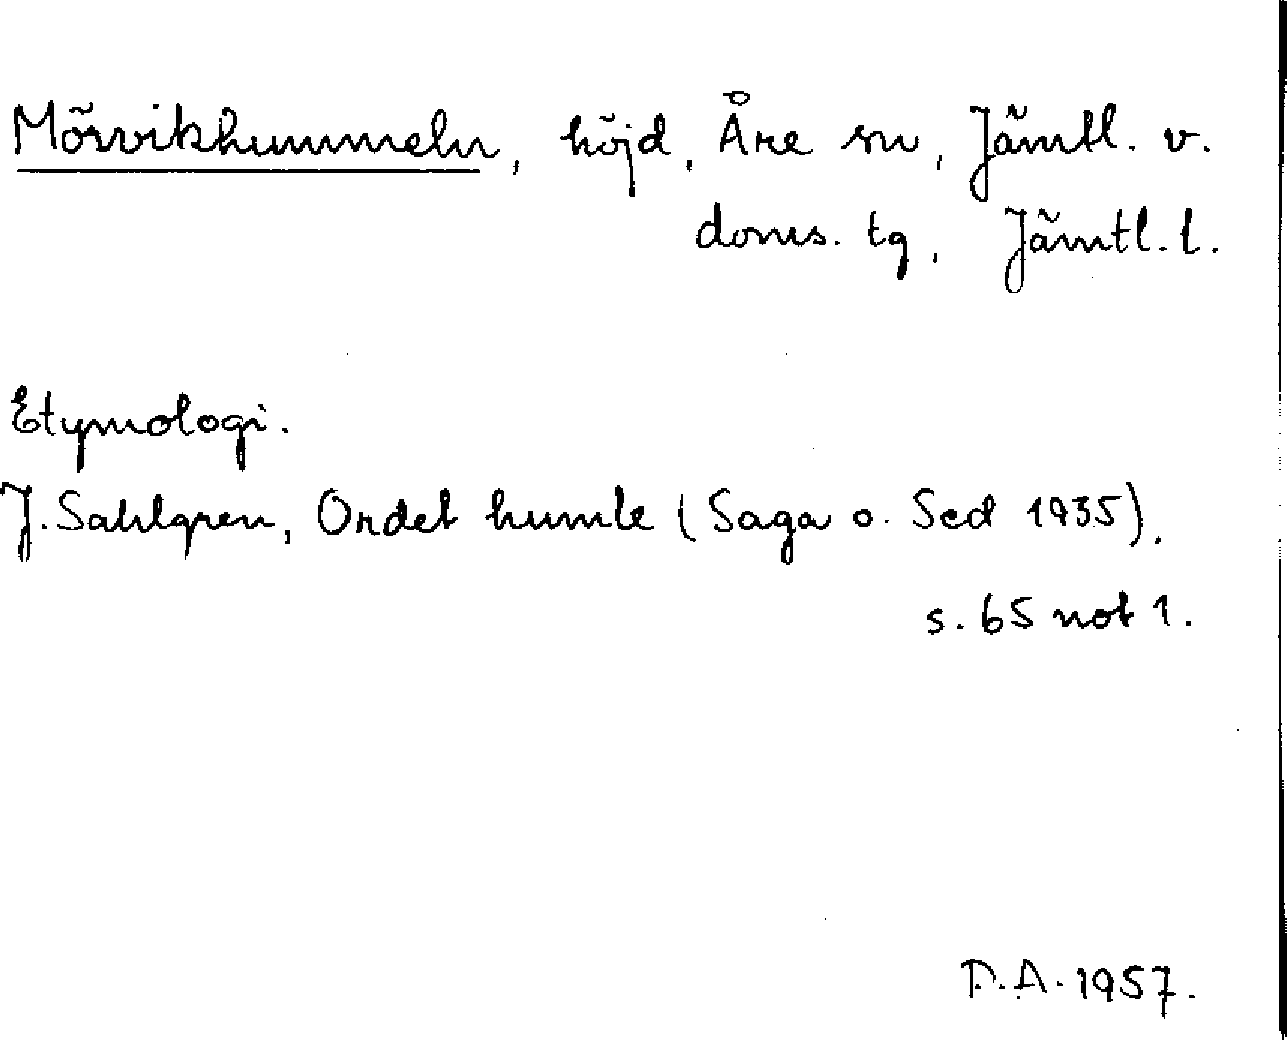 Mörvikhummeln, höjd, Åre sn, Jämtl. v.
doms. tg, Jämtl. l.
Etymologi.
J. Sahlgren, Ordet humle (Saga o. Sed 1935).
s. 65 not 1.
D.A. 1957.